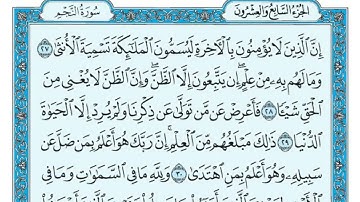 الجزء السابع والعشرون سورة النجم
إِنَّ ٱلَّذِينَ لَا يُؤْمِنُونَ بِٱلْءَاخِرَةِ لَيُسَمُّونَ ٱلْمَلَٰٓئِكَةَ تَسْمِيَةَ ٱلْأُنثَىٰ ٢٧
وَمَا لَهُم بِهِۦ مِنْ عِلْمٍ إِن يَتَّبِعُونَ إِلَّا ٱلظَّنَّ وَإِنَّ ٱلظَّنَّ لَا يُغْنِى مِنَ
ٱلْحَقِّ شَيْـًٔا ٢٨ فَأَعْرِضْ عَن مَّن تَوَلَّىٰ عَن ذِكْرِنَا وَلَمْ يُرِدْ إِلَّا ٱلْحَيَوٰةَ
ٱلدُّنْيَا ٢٩ ذَٰلِكَ مَبْلَغُهُم مِّنَ ٱلْعِلْمِ إِنَّ رَبَّكَ هُوَ أَعْلَمُ بِمَن ضَلَّ عَن
سَبِيلِهِۦ وَهُوَ أَعْلَمُ بِمَنِ ٱهْتَدَىٰ ٣٠ وَلِلَّهِ مَا فِى ٱلسَّمَٰوَٰتِ وَمَا فِى